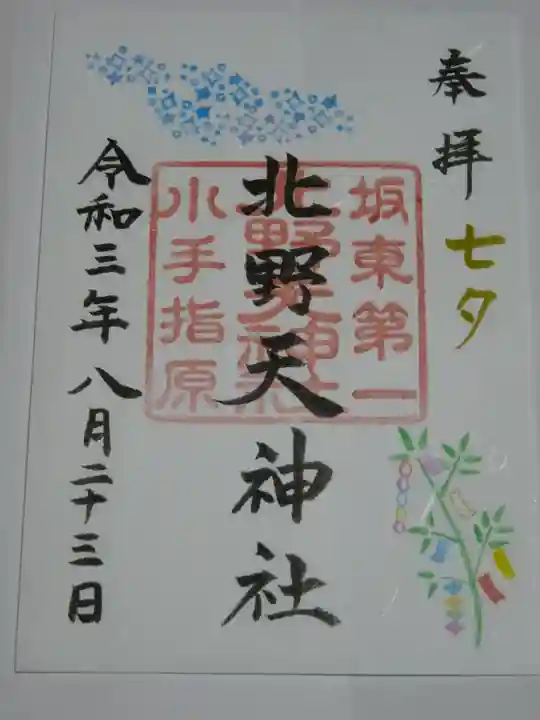 奉拝
七夕
坂東第一
北野天神社
北野天神社
小手指原
令和三年八月二十三日